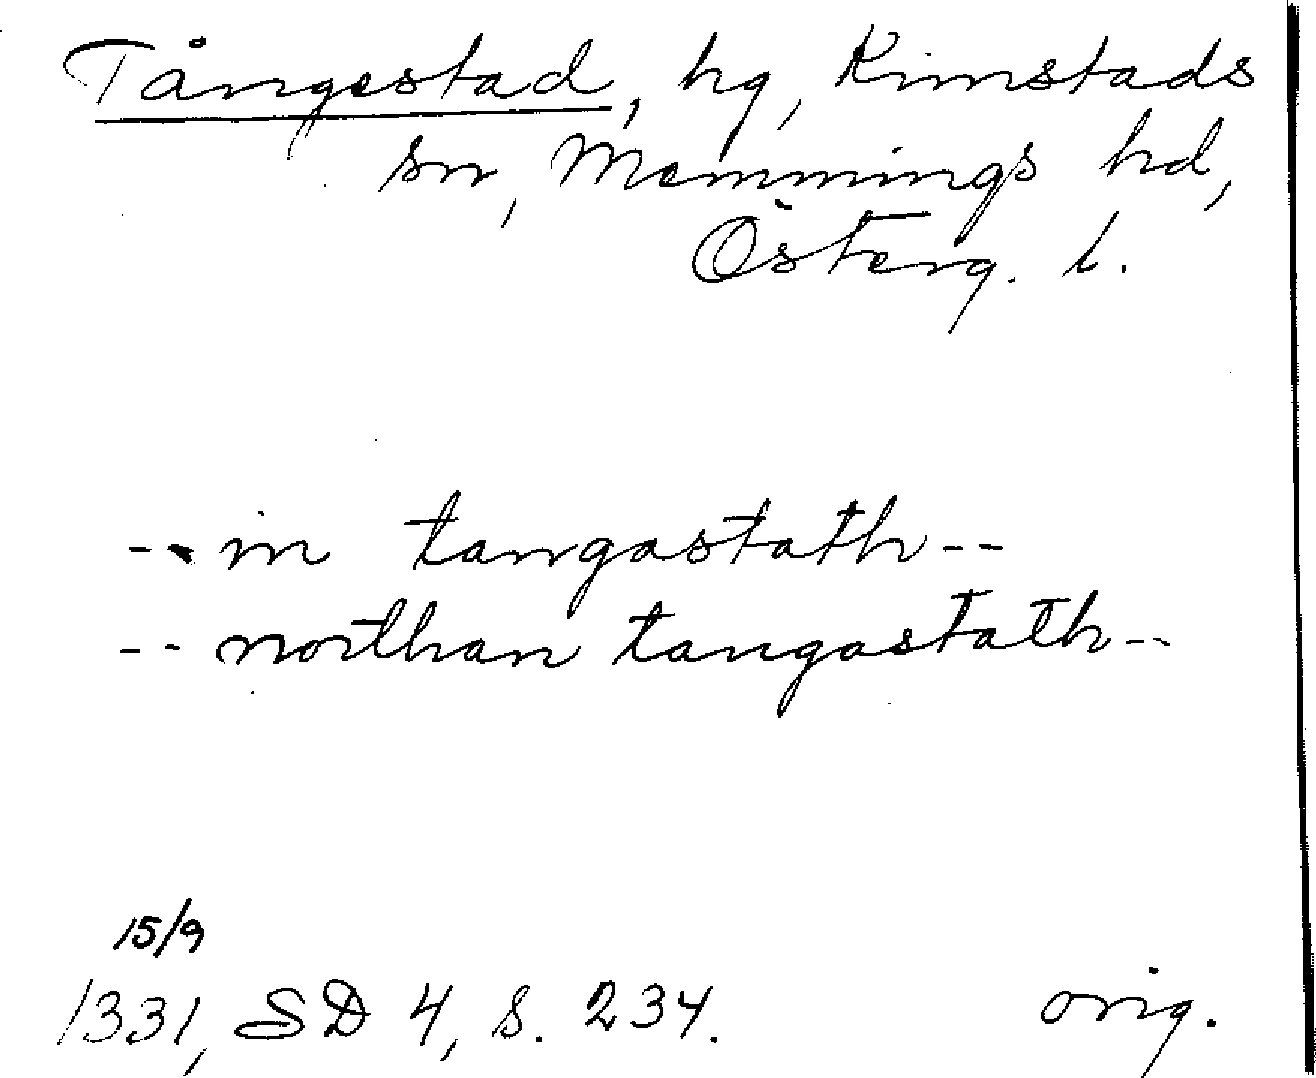 Tångestad, hg, Kimstads
sn, Memmings hd,
Österg. l.
--in tangastath--
--northan tangastath--
15/9
1331, SD 4, s. 234.
orig.